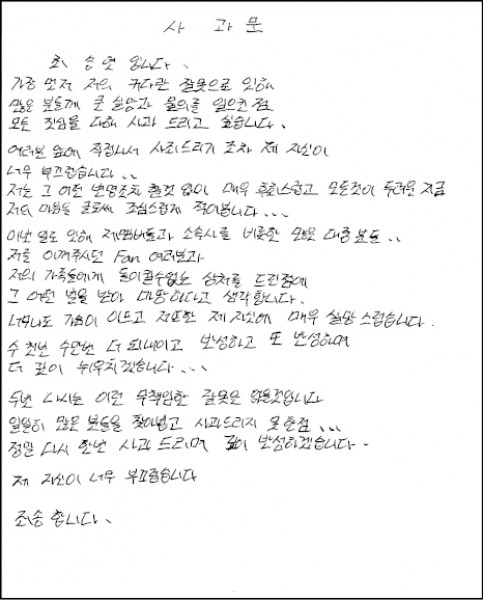 사 과 문
최 승 연 입니다.
가장 먼저 저의 커다란 잘못으로 인해
많은 분들께 큰 실망과 물의를 일으킨 점
모든 진심을 다해 사과 드리고 싶습니다.
여러분 앞에 직접나서 사죄드리기 조차 제 자신이
너무 부끄럽습니다..
저는 그 어떤 변명조차 할것 없이 매우 후회스럽고 모든것이 두려운 지금
저의 마음을 글로써 조심스럽게 적어봅니다...
이번 일로 인해 제 멤버들과 소속사를 비롯한 많은 대중 분들..
저를 아껴주시던 Fan 여러분과
저의 가족들에게 돌이킬수없는 상처를 드린점에
그 어떤 벌을 받아 마땅하다고 생각합니다.
너무나도 가슴이 아프고 초라한 제 자신에 매우 실망 스럽습니다.
수 천번 수만번 더 되뇌이고 반성하고 또 반성하며
더 깊이 뉘우치겠습니다...
두번 다시는 이런 무책임한 잘못은 없을것입니다
일일히 많은 분들을 찾아뵙고 사과드리지 못한점...
정말 다시 한번 사과 드리며 깊이 반성하겠습니다..
제 자신이 너무 부끄럽습니다
죄송 합니다.